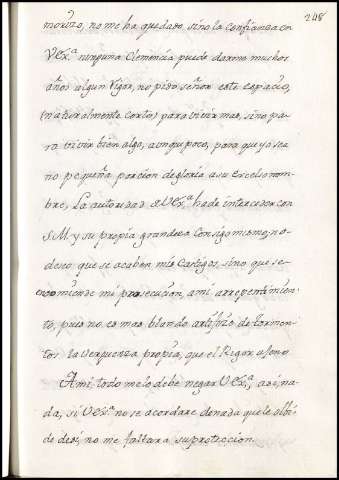 248
morizo, no me ha quedado, sino la confianza en
VEx.ª ninguna Clemencia puede darme muchos
años algun Vigor, no pido señor este espacio,
(naturalmente corto) para vivir mas, sino pa-
ra vivir bien algo, aunque poco, para que yo sea
no pequeña porcion de gloria a su Excelso nom-
bre, La autoridad de VEx.ª ha de interceder con
S.M. y su propia grandeza Consigo mismo; no
deseo que se acaben mis Castigos, sino que se
encomiende mi prosecucion, a mi arrepentimien-
to, pues no es mas blando artifizio de tormen-
tos la verguenza propia, que el Rigor ajeno
A mi todo me lo debe negar VEx.ª, a si na-
da, si VEx.ª no se acordare de nada que le olbi-
de de si, no me faltara su proteccion